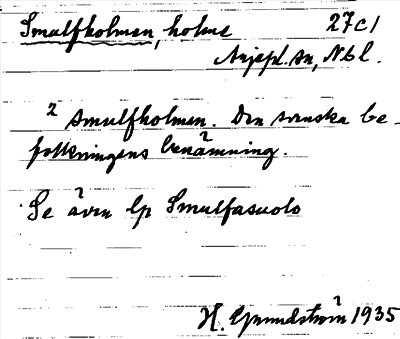 Smulfholmen, holme 27c1
Arjepl. sn, Nbl.
2 Smulfholmen. Den svenska be-
folkningens benämning.
Se även lp Smulfasuolo
H. Grundström 1935